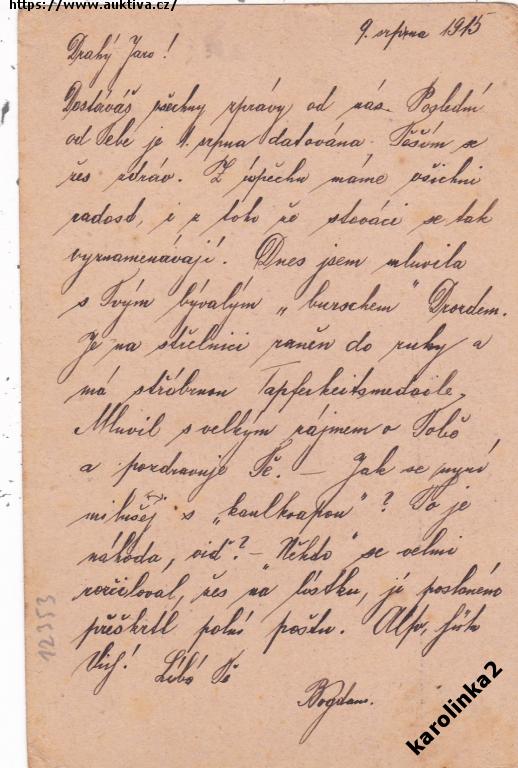 https://www.auktiva.cz/
9. srpna 1915
Drahý Jaro!
Dostáváš všechny zprávy od nás. Poslední
od Tebe je 1. srpna datována. Těším se
žes zdráv. Z úspěchu máme všichni
radost, i z toho že stováci se tak
vyznamenávají. Dnes jsem mluvila
s Tvým bývalým „burschem" Drordem.
Je na střelnici raněn do ruky a
má stříbrnou Tapferkeitsmedaile.
Mluvil s velkým zájmem o Tobě
a pozdravuje Tě. – Jak se nyní
s „ "? To je
náhoda, viď? – „Někdo" se velmi
rozčiloval, žes na lístku, jí poslaného
přeškrtl polní poštu. Also, hüte
Dich! Líbá Tě
Bogdana.
12353
karolinka2